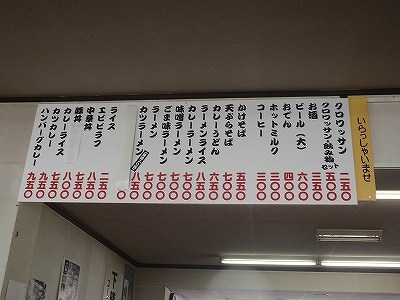 いらっしゃいませ
クロワッサン 二五〇
クロワッサン・飲み物セット 五〇〇
お酒 三五〇
ビール(大) 六〇〇
おでん 四〇〇
ホットミルク 三〇〇
コーヒー 三〇〇
かけそば 五五〇
天ぷらそば 七〇〇
カレーうどん 六五〇
ラーメンライス 八五〇
カレーラーメン 七〇〇
味噌ラーメン 七〇〇
ごま味ラーメン 七〇〇
ラーメン
カツラーメン 八五〇
ライス 二五〇
エビピラフ
中華丼 八五〇
豚丼
カレーライス 八〇〇
カツカレー 九五〇
ハンバーグカレー 九五〇